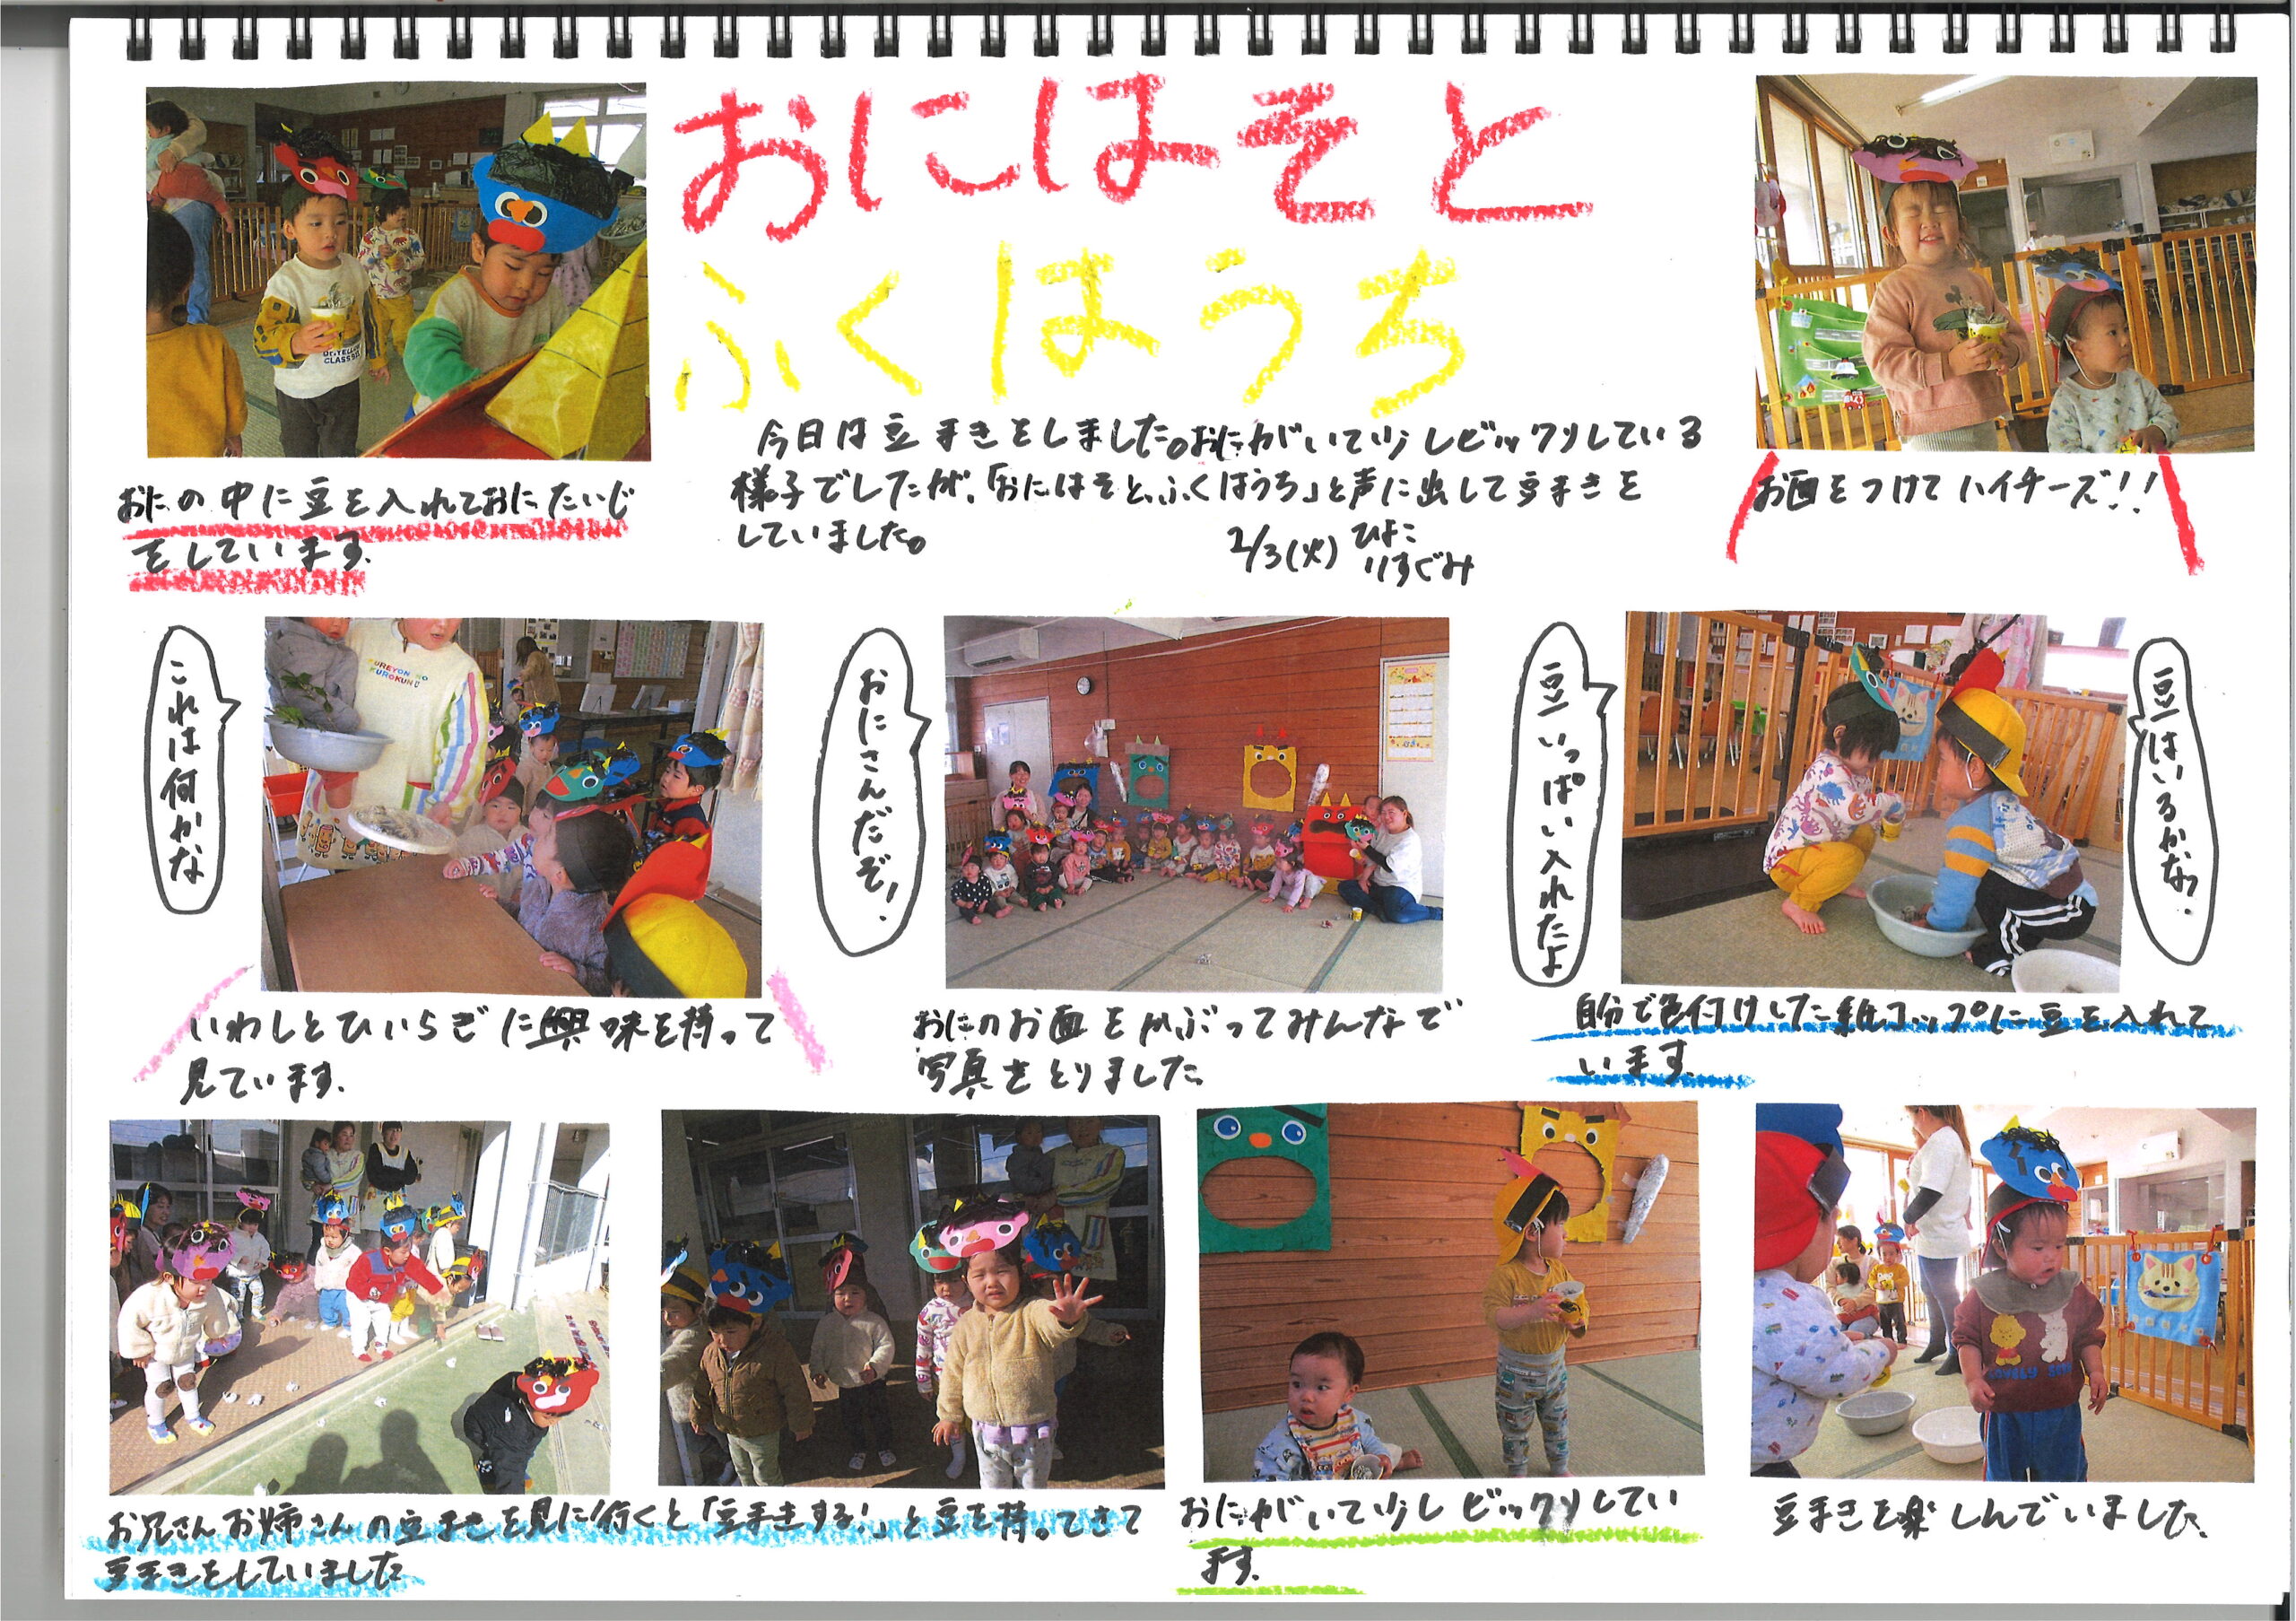 おにはそと
ふくはうち
今日は豆まきをしました。おにがいて少しビックリしている
様子でしたが、「おにはそと、ふくはうち」と声に出して豆まきを
していました。
2/3(火) ひよこ
りすぐみ
おにの中に豆を入れておにたいじ
をしています。
お面をつけてハイチーズ!!
これは何かな
おにさんだぞ!
豆いっぱい入れたよ
豆はいるかな?
いわしとひいらぎに興味を持って
見ています。
おにのお面をかぶってみんなで
写真をとりました。
自分で色付けした紙コップに豆を入れて
います。
お兄さんお姉さんの豆まきを見に行くと「豆まきする!」と豆を持ってきて
豆まきをしていました
おにがいて少しビックリしてい
ます。
豆まきを楽しんでいました。